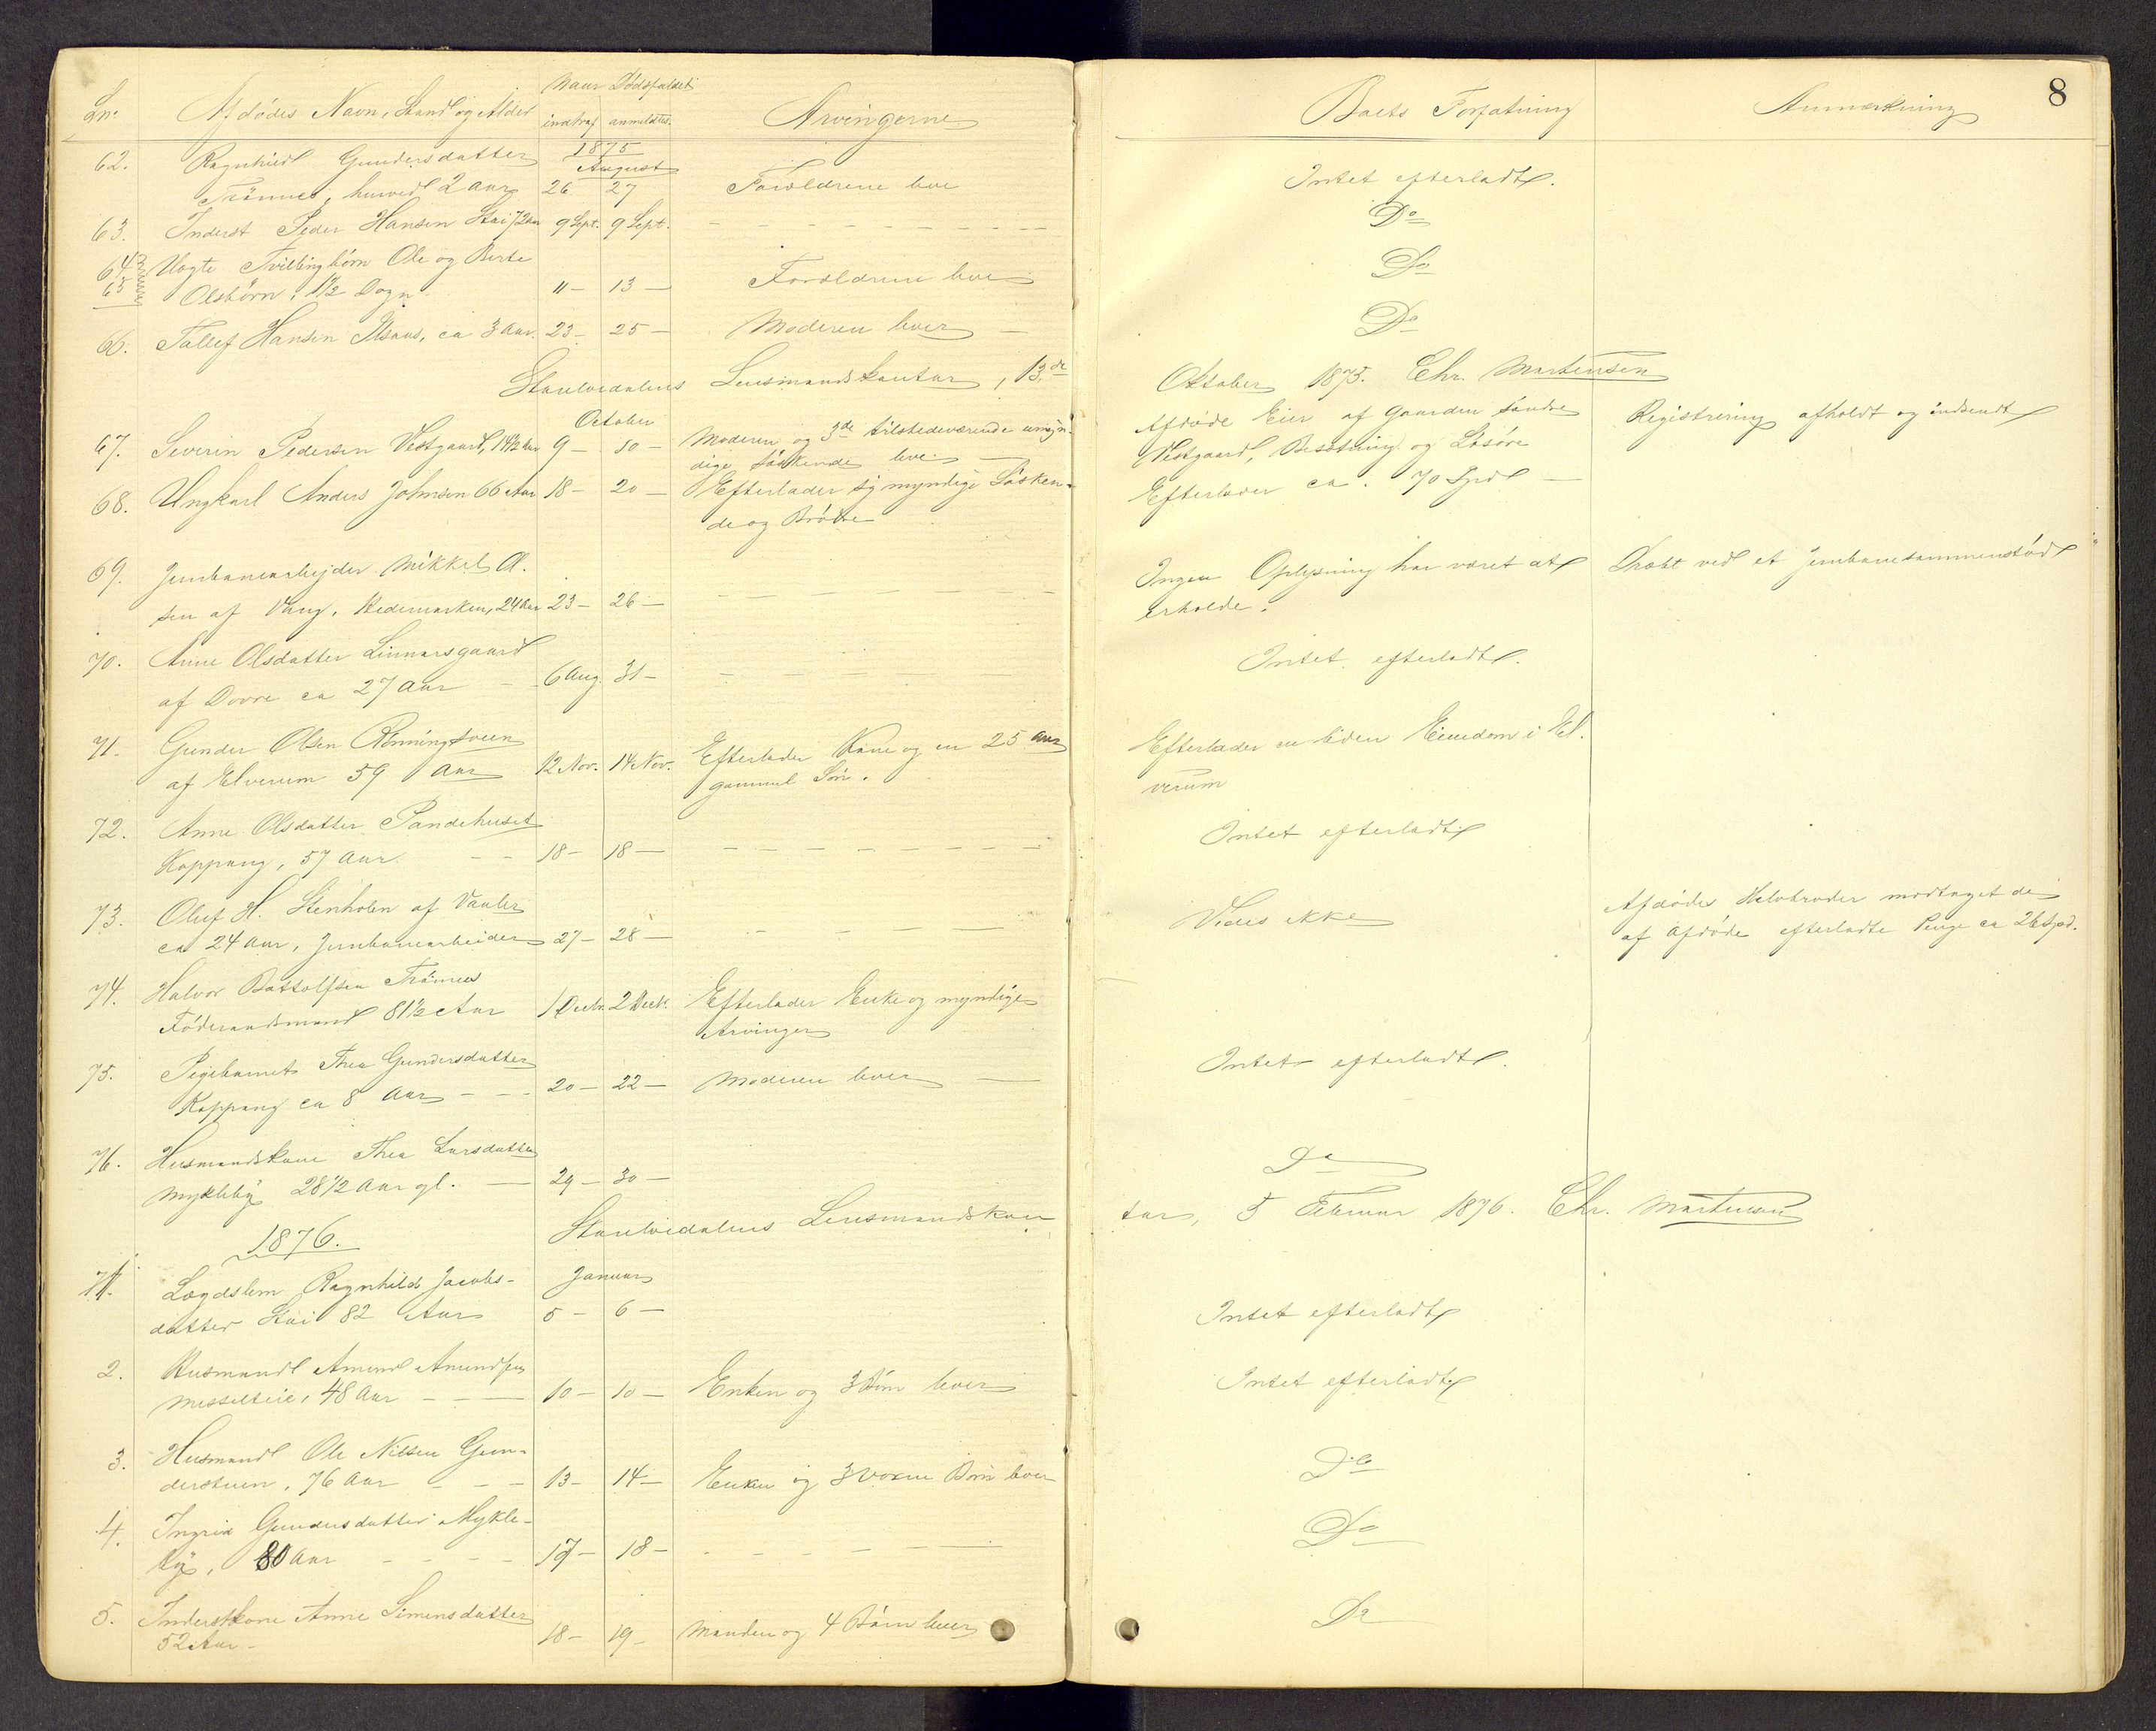 Naar Dødsfaldet
Ln. Afdødes Navn, Stand og Alder indtraf anmeldtes. Arvingerne Boets Forfatning Anmærkning 8
1875
62. Ragnhild Gundersdatter August
Trønnes, henved 2 Aar 26 27 Forældrene leve Intet efterladt.
63. Inderst Peder Hansen Stai 72 Aar 9 Sept. 9 Sept. Do
64 Uægte Tvillingbørn Ole og Berte
65 Olsbørn, 1 1/2 Døgn 11 13 Forældrene leve Do
66. Tollef Hansen ca 3 Aar. 23 25 Moderen lever Do
Storelvedalens Lensmandskontor, 13de Oktober 1875. Chr. Mortensen
October
67. Severin Pedersen Vestgaard, 14 1/2 Aar 9 10 Moderen og 3de tilstedeværende umyn- Afdøde Eier af Gaarden Søndre Registrering afholdt og indsendt
dige Søskende leve Vestgaard, Besætning og Løsøre
68. Ungkarl Anders Johnsen 66 Aar 18 20 Efterlader sig myndige Søsken- Efterlader ca. 70 Spd
de og Brødre
69. Jernbanearbejder Mikkel Ol- Ingen Oplysning har været at Dræbt ved et Jernbanesammenstød
sen af Vang, Hedemarken, 24 Aar 23 26 erholde.
70. Anne Olsdatter Linnersgaard
af Dovre ca 27 Aar 6 Aug. 31 Intet efterladt.
71. Gunder Olsen Rønningsveen
af Elverum 59 Aar 12 Nov. 14 Nov. Efterlader Kone og en 25 Aar Efterlader en liden Eiendom i El-
gammel Søn. verum
72. Anne Olsdatter Sandehuset
Koppang, 57 Aar. 18 18 Intet efterladt
73. Oluf H. Stenholen af Vaaler Vides ikke Afdødes Halvbroder modtaget de
ca 24 Aar, Jernbanearbeider 27 28 af Afdøde efterladte Penge ca 26 Spd.
74. Halvor Bottolfsen Trønnes
Føderaadsmand 81 1/2 Aar 1 Decbr. 2 Decbr. Efterlader Enke og myndige
Arvinger
75. Pigebarnet Thea Gundersdatter
Koppang ca 8 Aar 20 22 Moderen lever Intet efterladt.
76. Husmandskone Thea Larsdatter
Myklebÿ 28 1/2 Aar gl. 29 30 Do
1876. Storelvedalens Lensmandskon-
tor, 5 Februar 1876. Chr. Mortensen
1. Lægdslem Ragnhild Jacobs- Januar
datter Stai 82 Aar 5 6 Intet efterladt
2. Husmand Amund Amundsen
Messelteie, 48 Aar 10 10 Enken og 3 Børn lever Intet efterladt
3. Husmand Ole Nilsen Gun-
derstuen, 76 Aar 13 14 Enken og 3 voxne Børn lever Do
4. Ingrid Gundersdatter Mykle-
bÿ, 80 Aar 17 18 Do
5. Inderstkone Anne Simensdatter
52 Aar 18 19 Manden og 4 Børn lever Do